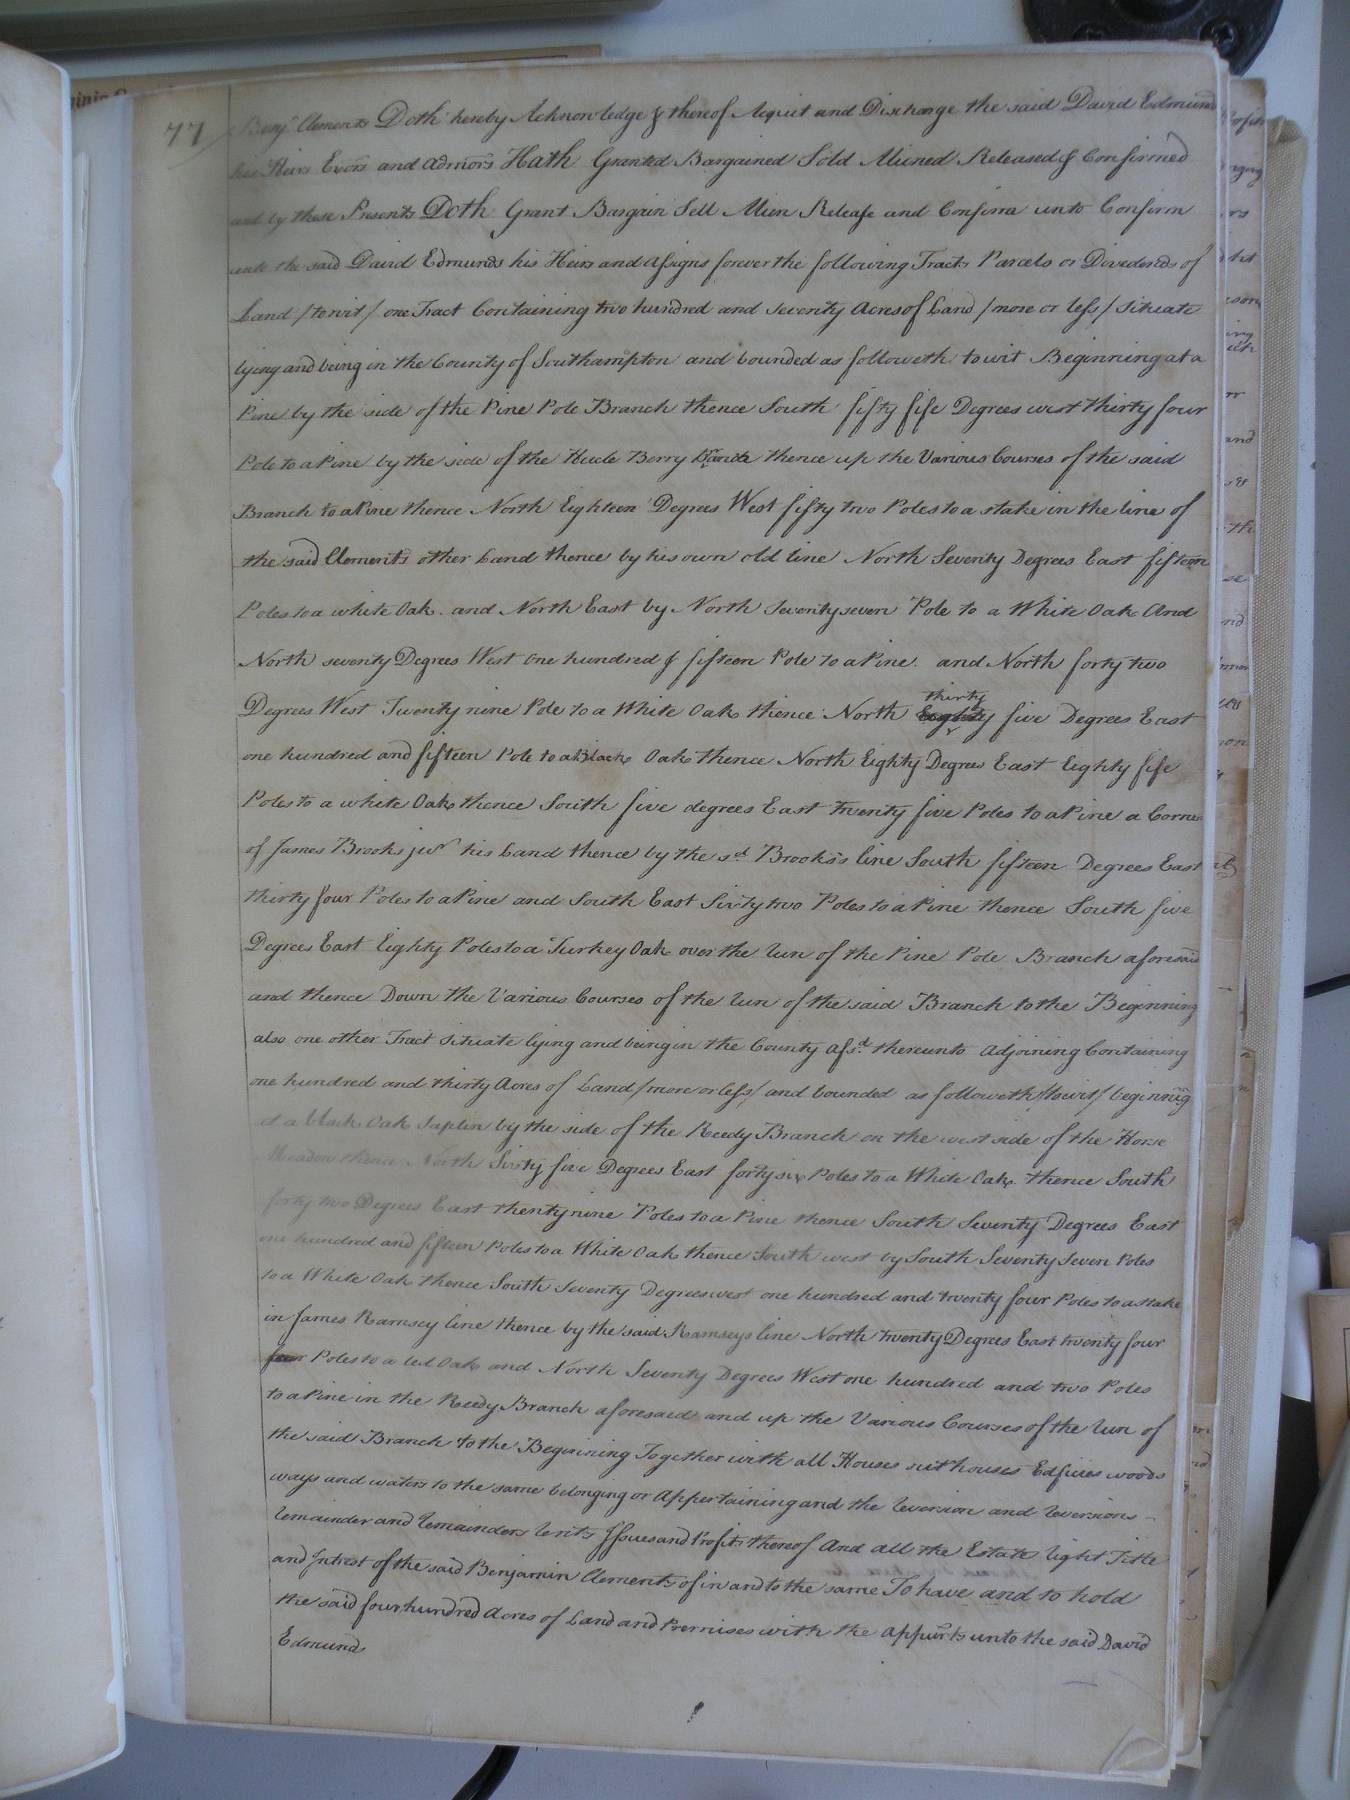 77
Benj.n Clements Doth hereby Acknowledge & thereof Acquit and Discharge the said David Edmund
his Heirs Exors and admors Hath Granted Bargained Sold Aliened Released & Confirmed
and by these Presents Doth Grant Bargain Sell Alien Release and Confirm unto Confirm
unto the said David Edmunds his Heirs and Assigns forever the following Tracts Parcels or Dividends of
Land /towit/ one Tract Containing two hundred and seventy Acres of Land /more or less/ Situate
lying and being in the County of Southampton and bounded as followeth towit Beginning at a
Pine by the side of the Pine Pole Branch thence South fifty fife Degrees west thirty four
Pole to a Pine by the side of the Hucle Berry Branch thence up the Various Courses of the said
Branch to a Pine thence North Eighteen Degrees West fifty two Poles to a stake in the line of
the said Clements other Land thence by his own old line North Seventy Degrees East fifteen
Poles to a white Oak and North East by North Seventy seven Pole to a White Oak And
North seventy Degrees West one hundred & fifteen Pole to a Pine and North forty two
Degrees West Twenty nine Pole to a White Oak thence North thirty five Degrees East
one hundred and fifteen Pole to a Black Oak thence North Eighty Degrees East Eighty fife
Poles to a white Oak thence South five degrees East twenty five Poles to a Pine a Corner
of James Brooks jur his Land thence by the sd. Brooks's line South fifteen Degrees East
thirty four Poles to a Pine and South East Sixty two Poles to a Pine thence South five
Degrees East Eighty Poles to a Turkey Oak over the run of the Pine Pole Branch aforesaid
and thence Down the Various Courses of the run of the said Branch to the Beginning
also one other Tract situate lying and being in the County afsd. thereunto Adjoining Containing
one hundred and thirty Acres of Land /more or less/ and bounded as followeth /towit/ beginning
at a black Oak Saplin by the side of the Reedy Branch on the west side of the Horse
Meadow thence North Sixty five Degrees East forty six Poles to a White Oak thence South
forty two Degrees East thenty nine Poles to a Pine thence South Seventy Degrees East
one hundred and fifteen Poles to a White Oak thence South west by South Seventy Seven Poles
to a White Oak thence South Seventy Degrees west one hundred and twenty four Poles to a stake
in James Ramsey line thence by the said Ramseys line North twenty Degrees East twenty four
four Poles to a red Oak and North Seventy Degrees West one hundred and two Poles
to a Pine in the Reedy Branch aforesaid and up the Various Courses of the run of
the said Branch to the Beginning Together with all Houses outhouses Edfices woods
ways and waters to the same belonging or Appertaining and the reversion and reversions
remainder and remainders rents Issues and Profits thereof And all the Estate right Title
and Intrest of the said Benjamin Clements of in and to the same To have and to hold
the said four hundred Acres of Land and Premises with the appurts unto the said David
Edmunds